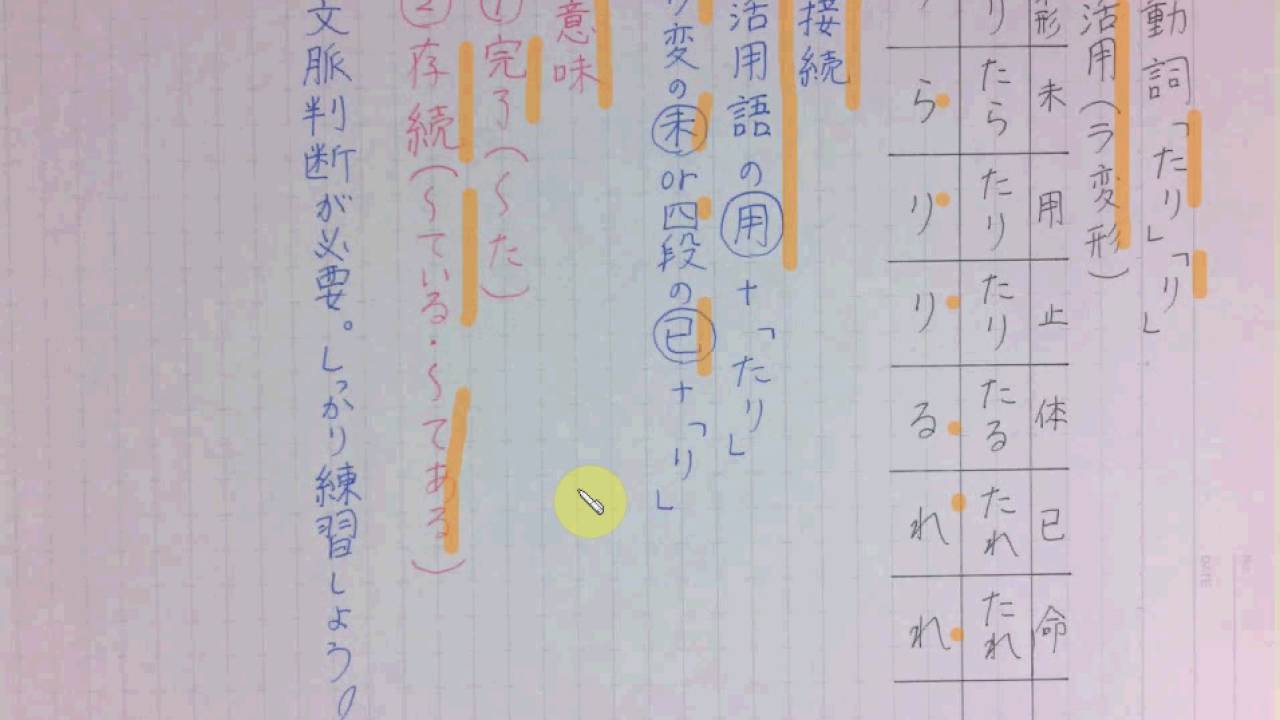 動詞「たり」「り」
活用(ラ変形)
形 未 用 止 体 已 命
り たら たり たり たる たれ たれ
ら り り る れ れ
接続
活用語の用+「たり」
変の未or四段の已+「り」
意味
①完了(〜た)
②存続(〜ている・〜てある)
文脈判断が必要。しっかり練習しよう。